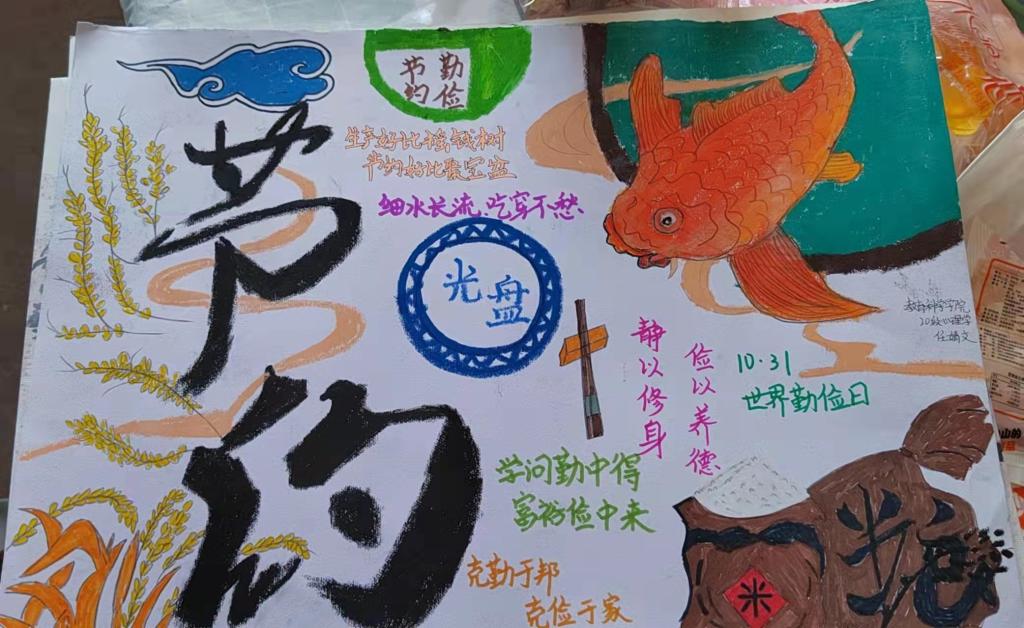 节约
勤俭
节约
生产好比摇钱树
节约好比聚宝盆
细水长流、吃穿不愁
光盘
静以修身
俭以养德
10·31
世界勤俭日
教育科学学院
20级心理学
学问勤中得
富裕俭中来
克勤于邦
克俭于家
米
粮